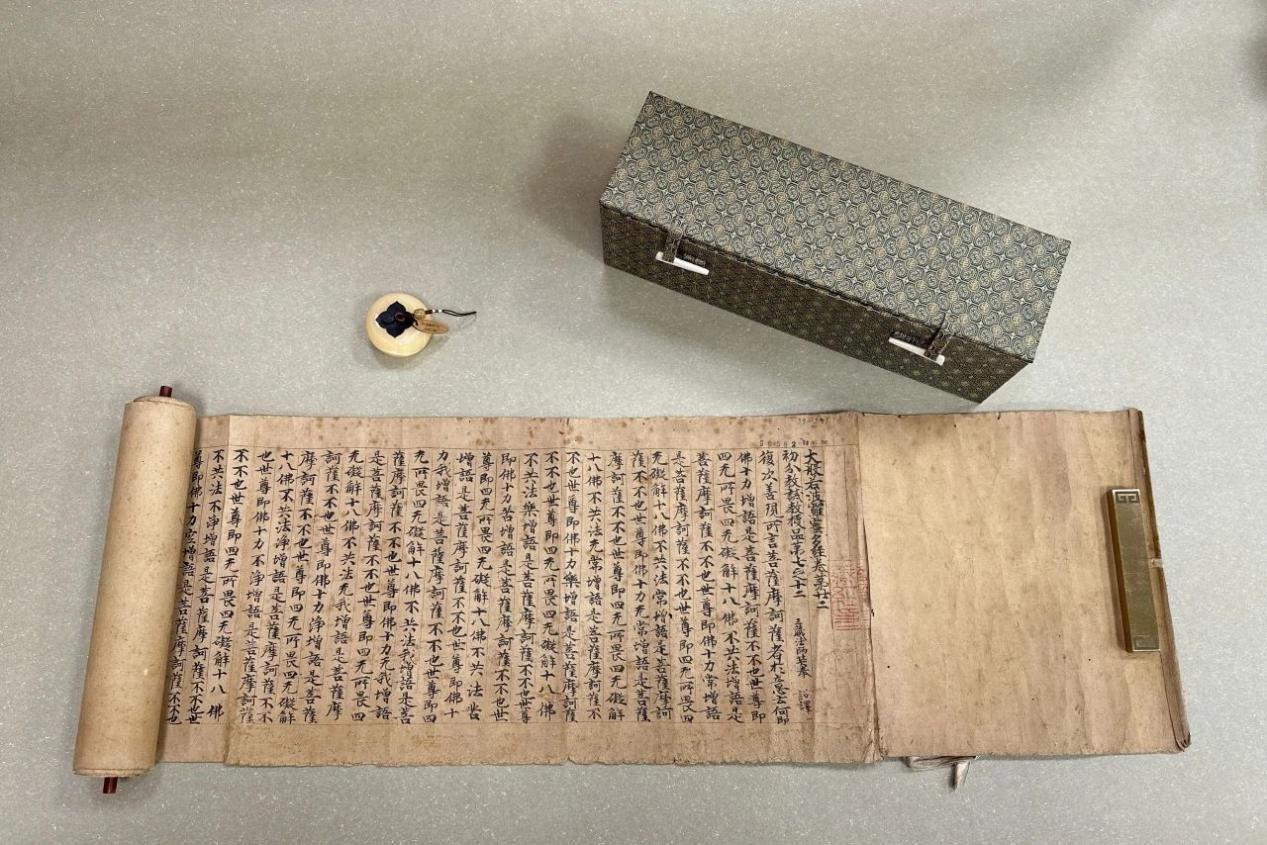 大般若波羅蜜多經卷第廿二
初分教誡教授品第七之十二 三藏法師玄奘奉 詔譯
復次善現所言菩薩摩訶薩者於意云何即
佛十力增語是菩薩摩訶薩不不也世尊即
四无所畏四无礙解十八佛不共法增語是
菩薩摩訶薩不不也世尊即佛十力常增語
是菩薩摩訶薩不不也世尊即四无所畏四
无礙解十八佛不共法常增語是菩薩摩訶
薩不不也世尊即佛十力无常增語是菩薩
摩訶薩不不也世尊即四无所畏四无礙解
十八佛不共法无常增語是菩薩摩訶薩不
不也世尊即佛十力樂增語是菩薩摩訶薩
不不也世尊即四无所畏四无礙解十八佛
不共法樂增語是菩薩摩訶薩不不也世尊
即佛十力苦增語是菩薩摩訶薩不不也世
尊即四无所畏四无礙解十八佛不共法苦
增語是菩薩摩訶薩不不也世尊即佛十
力我增語是菩薩摩訶薩不不也世尊即四
无所畏四无礙解十八佛不共法我增語是菩
薩摩訶薩不不也世尊即佛十力无我增語
是菩薩摩訶薩不不也世尊即四无所畏四
无礙解十八佛不共法无我增語是菩薩摩
訶薩不不也世尊即佛十力淨增語是菩薩
摩訶薩不不也世尊即四无所畏四无礙解
十八佛不共法淨增語是菩薩摩訶薩不不
也世尊即佛十力不淨增語是菩薩摩訶薩
不不也世尊即四无所畏四无礙解十八佛
不共法不淨增語是菩薩摩訶薩不不也世
尊即佛十力空增語是菩薩摩訶薩不不也